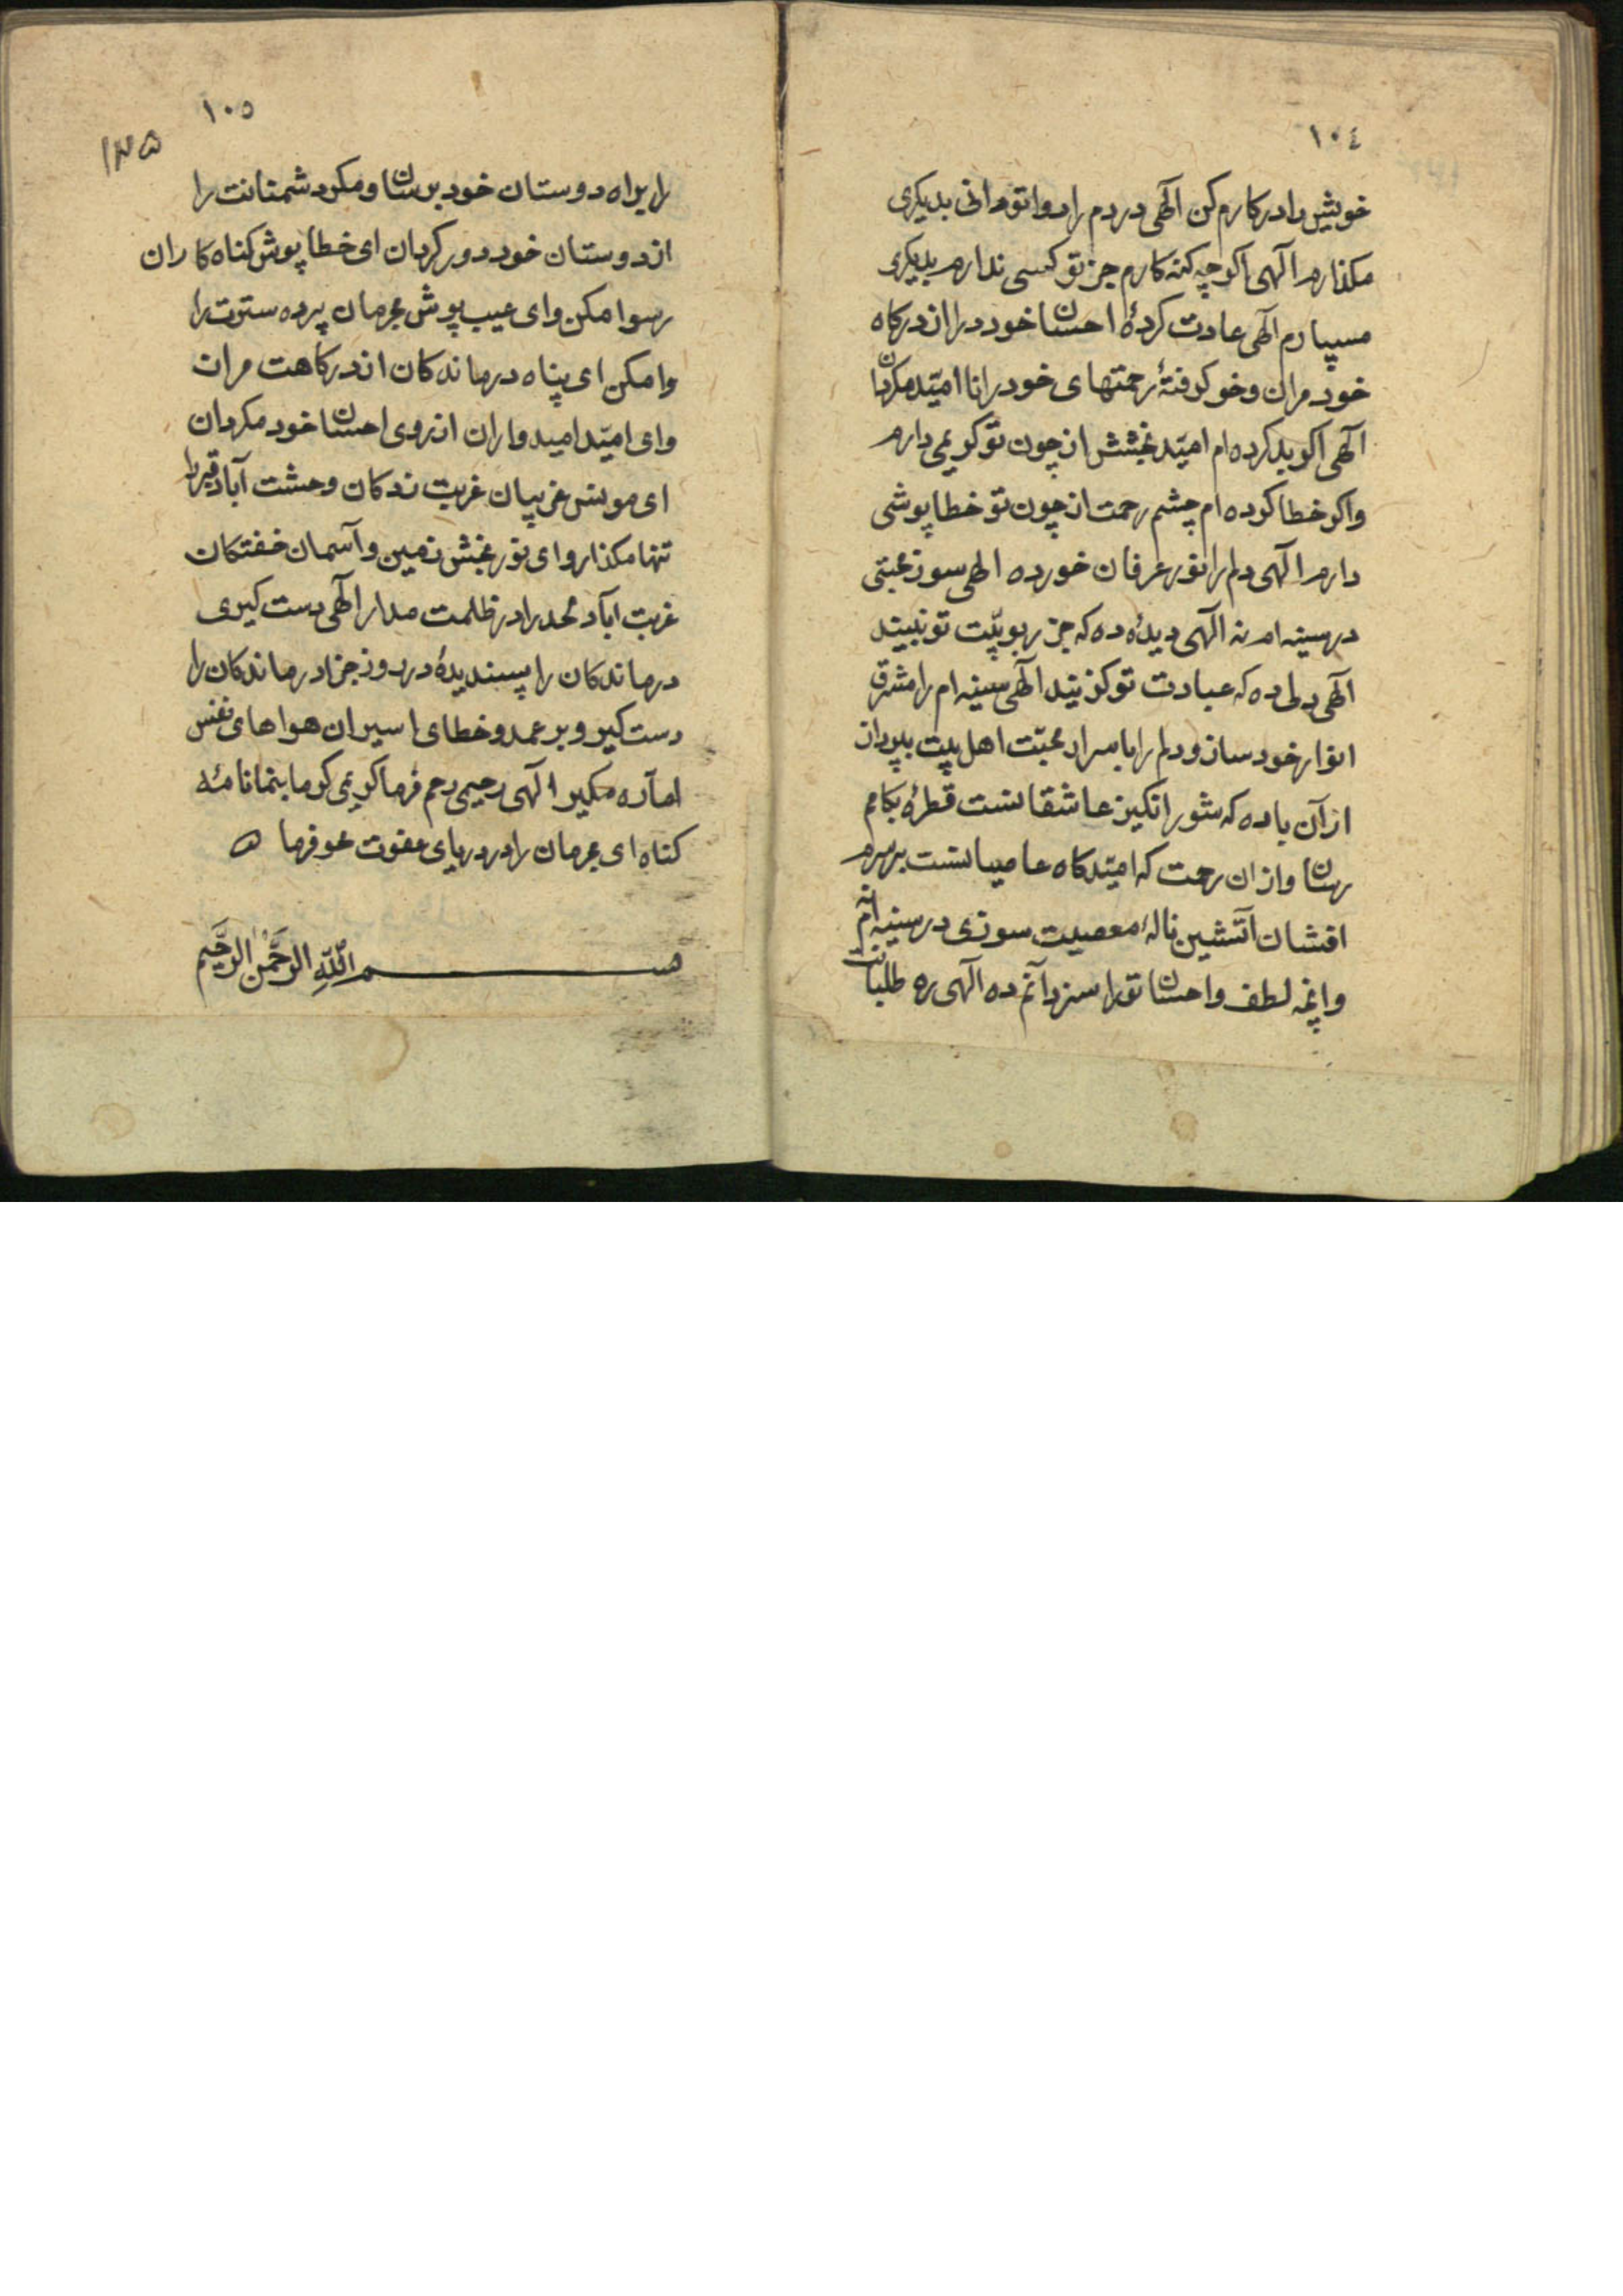 ١٠٤
خویش را در کارم کن آلهی دردم را دوا تو دانی بدیکری
مکذارم آلهی اکر چه کنه کارم جز تو کسی ندارم بدیکری
مسپارم آلهی عادت کردهٔ احسان خود را از درکاه
خود مران و خو کرفتهٔ رحمتهای خود را نا امّید مکردان
آلهی اکر بد کرده ام امّید بخشش از چون تو کریمی دارم
واکر خطا کرده ام چشم رحمت از چون تو خطا پوشی
دارم آلهی دلم را نور عرفان خود ده الهی سوز محبّتی
در سینه ام نه آلهی دیدهٔ ده که جز ربوبیّت تو نبیند
آلهی دلی ده که عبادت تو کزیند آلهی سینه ام را مشرق
انوار خود ساز و دلم را با سرار محبّت اهل بیت بپرداز
از آن باده که شور انکیز عاشقانست قطرهٔ بکامم
رسان و از ان رحمت که امیّد کاه عاصیانست بر سرم
افشان آتشین نالهٔ معصیت سوزی در سینه ام نه
وانچه لطف و احسان تو را سزد آنم ده آلهی ره طلبانت
١٠٥
١٢٥
را براه دوستان خود برسان و مکر دشمنانت را
از دوستان خود دور کردان ای خطا پوش کناه کاران
رسوا مکن وای عیب پوش مجرمان پرده سترت را
وا مکن ای پناه درماندکان از درکاهت مران
وای امیّد امیدواران از روی احسان خود مکردان
ای مونس غریبان غربت زدکان وحشت آباد قبر را
تنها مکذار وای نور بخش زمین و آسمان خفتکان
غربت اباد لحد را در ظلمت مدار آلهی دست کیری
درماندکان را پسندیدهٔ در روز جزا درماندکان را
دست کیر و بر عمد و خطای اسیران هواهای نفس
امآره مکیر آلهی رحیمی رحم فرما کریمی کرما بنما نامهٔ
کناه ای مجرمان را در دریای عفوت محو فرما ه
بسم اللّهِ الرَّحْمٰنِ الرَّحیم